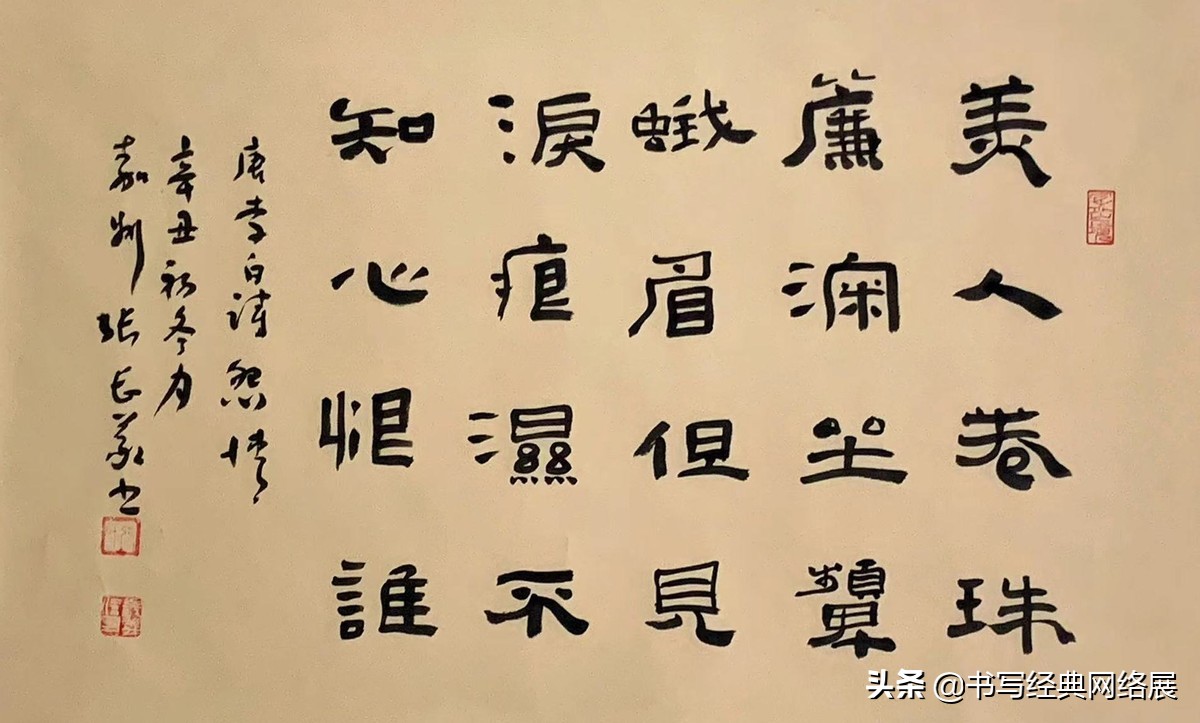 美人卷珠
簾深坐顰
蛾眉但見
淚痕濕不
知心恨誰
唐李白詩怨情
辛丑初冬月
嘉州张长義书
头条 @书写经典网络展